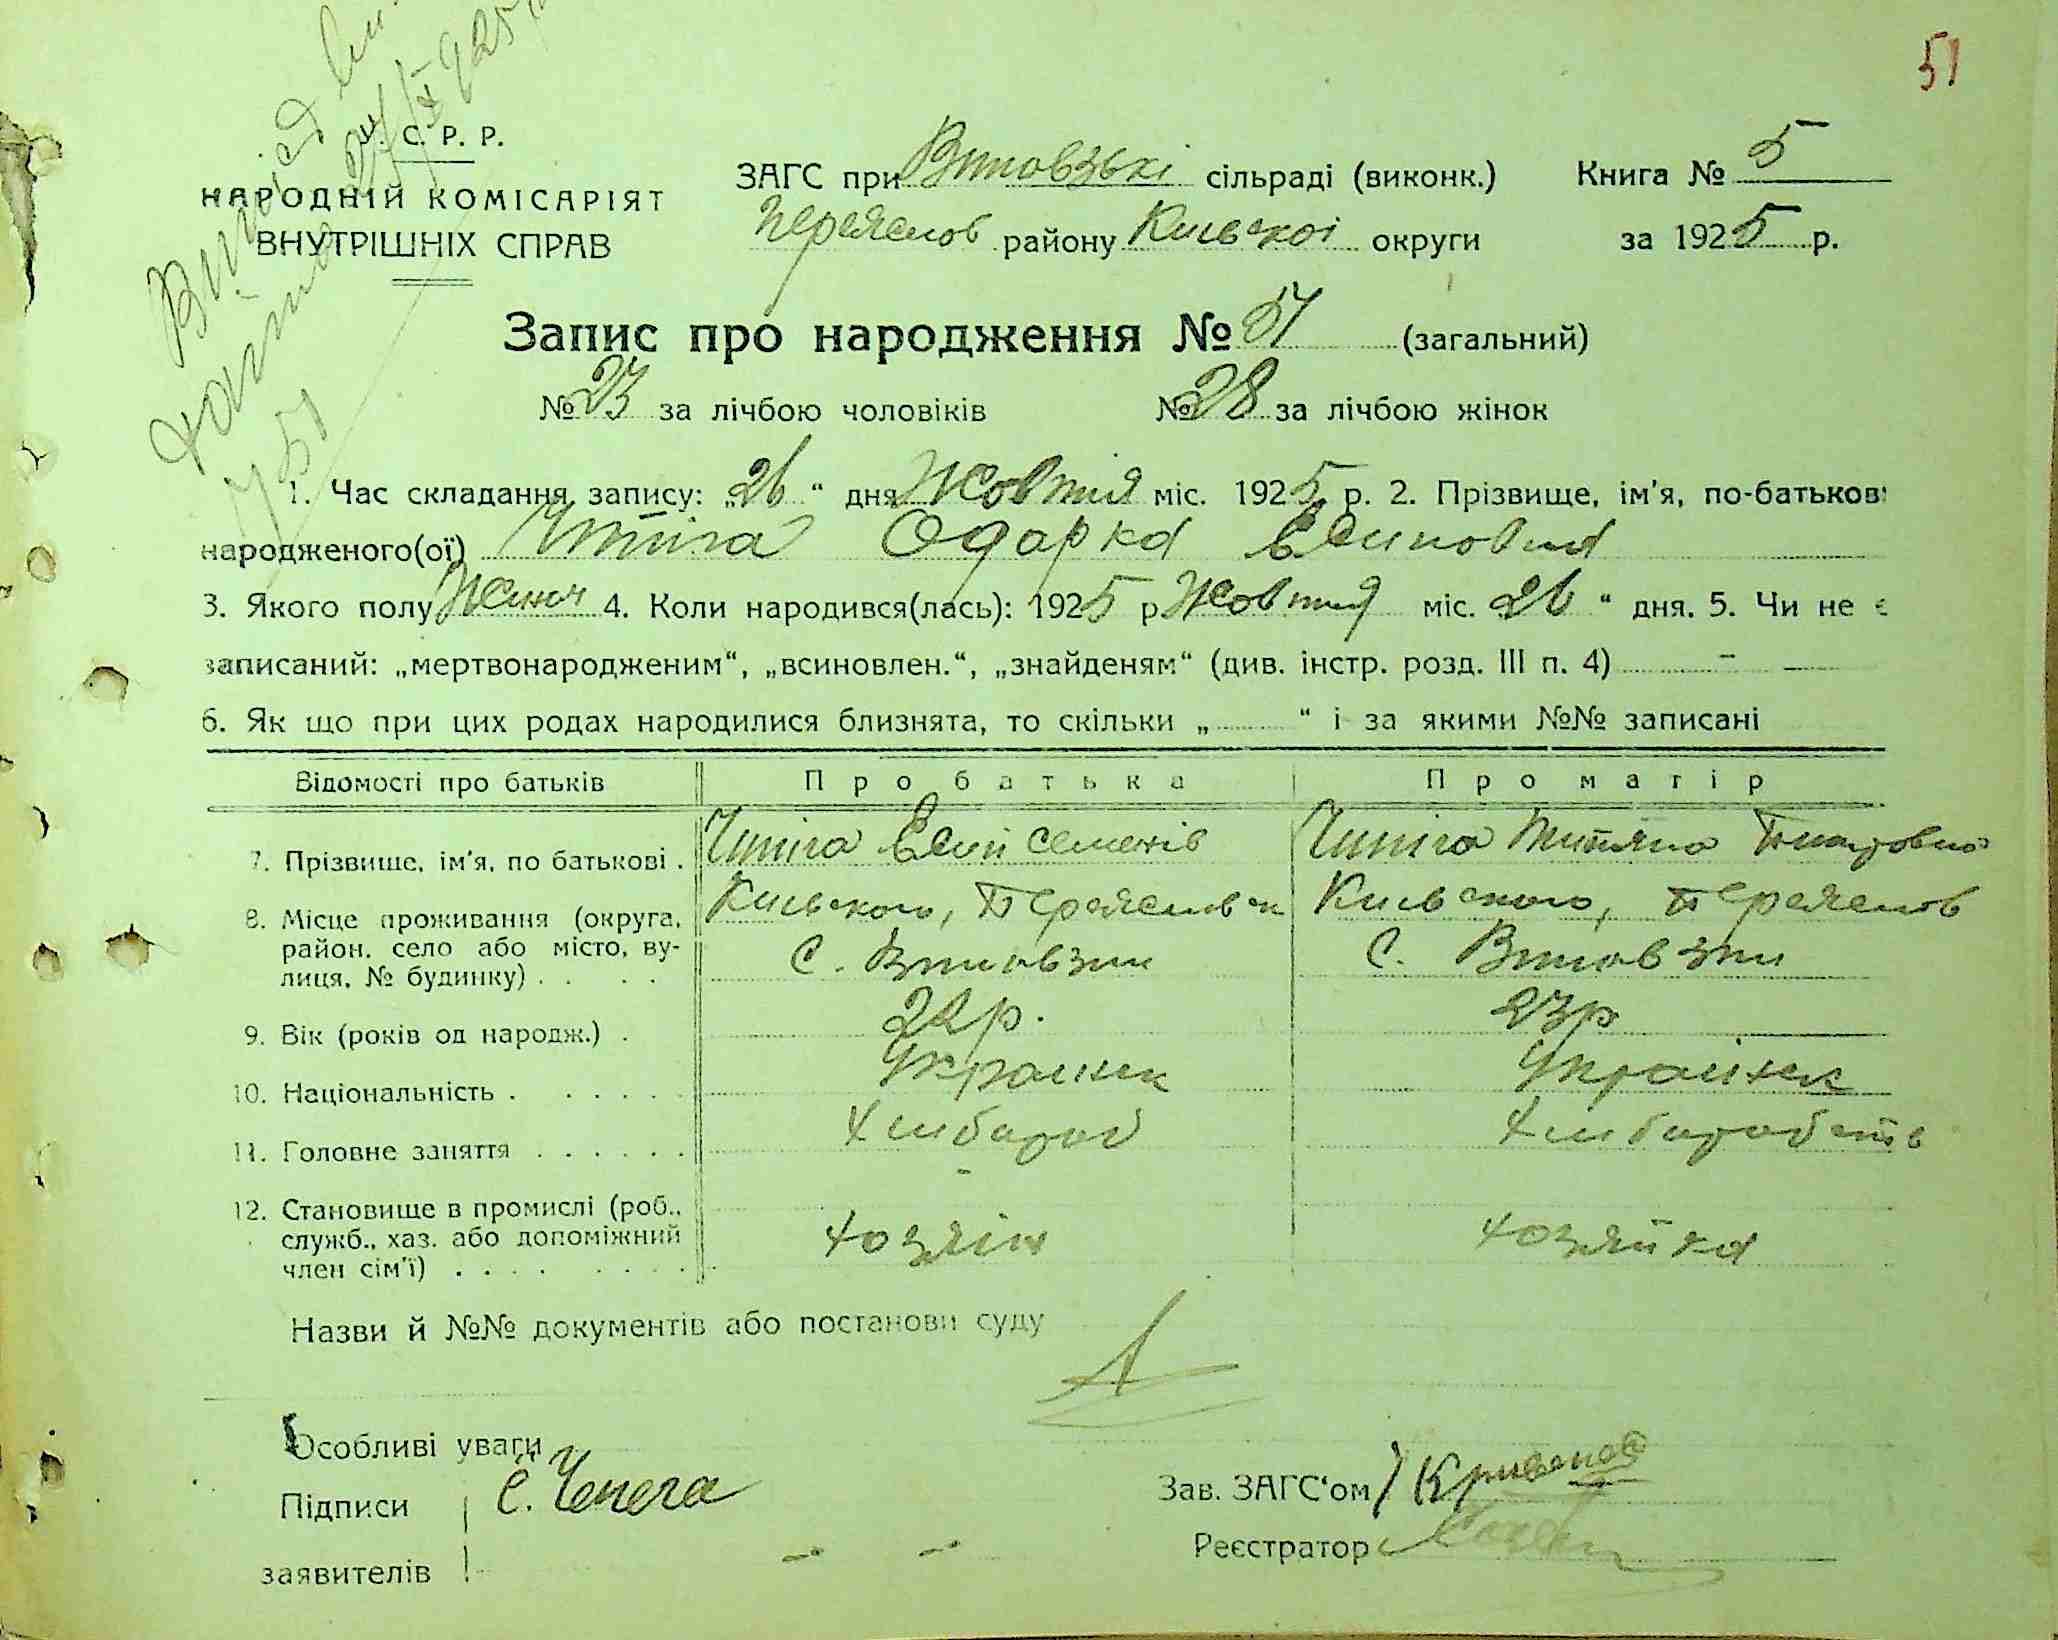 51
У. С. Р. Р.
НАРОДНІЙ КОМІСАРІЯТ
ВНУТРІШНІХ СПРАВ
ЗАГС при Втовзькі сільраді (виконк.) Книга № 5
Переяслов району Киівскоі округи за 1925 р.
Запис про народження № 51 (загальний)
№ 23 за лічбою чоловіків № 28 за лічбою жінок
1. Час складання запису: „26“ дня Жовтня міс. 1925 р. 2. Прізвище, ім'я, по-батькові
народженого(ої) Чипіга Одарка
3. Якого полу Жіноч 4. Коли народився(лась): 1925 р Жовтня міс. 26 “ дня. 5. Чи не є
записаний: „мертвонародженим“, „всиновлен.“, „знайденям“ (див. інстр. розд. III п. 4) –
6. Як що при цих родах народилися близнята, то скільки „ “ і за якими №№ записані
Відомості про батьків Про батька Про матір
7. Прізвище, ім'я, по батькові . Чипіга Семенів Чипіга Титяна
8. Місце проживання (округа, район, село або місто, вулиця, № будинку) . . . .
Киівского, Переясловск Киівского, Переяслов
с. Втовзки с. Втовзки
9. Вік (років од народж.) . 22р. 23р
10. Національність . . . . . . Украинск Украінск
11. Головне заняття . . . . . . Хлибороб
12. Становище в промислі (роб., служб., хаз. або допоміжний член сім'ї) . . . .
хозяін хозяйка
Назви й №№ документів або постанови суду
Особливі уваги
Підписи Є. Чепега Зав. ЗАГС‘ом
заявителів – – Реєстратор